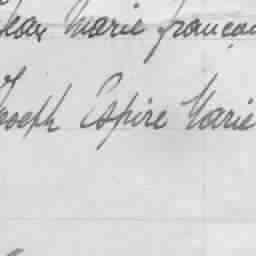 Jean Marie françois
Joseph Espire Marie